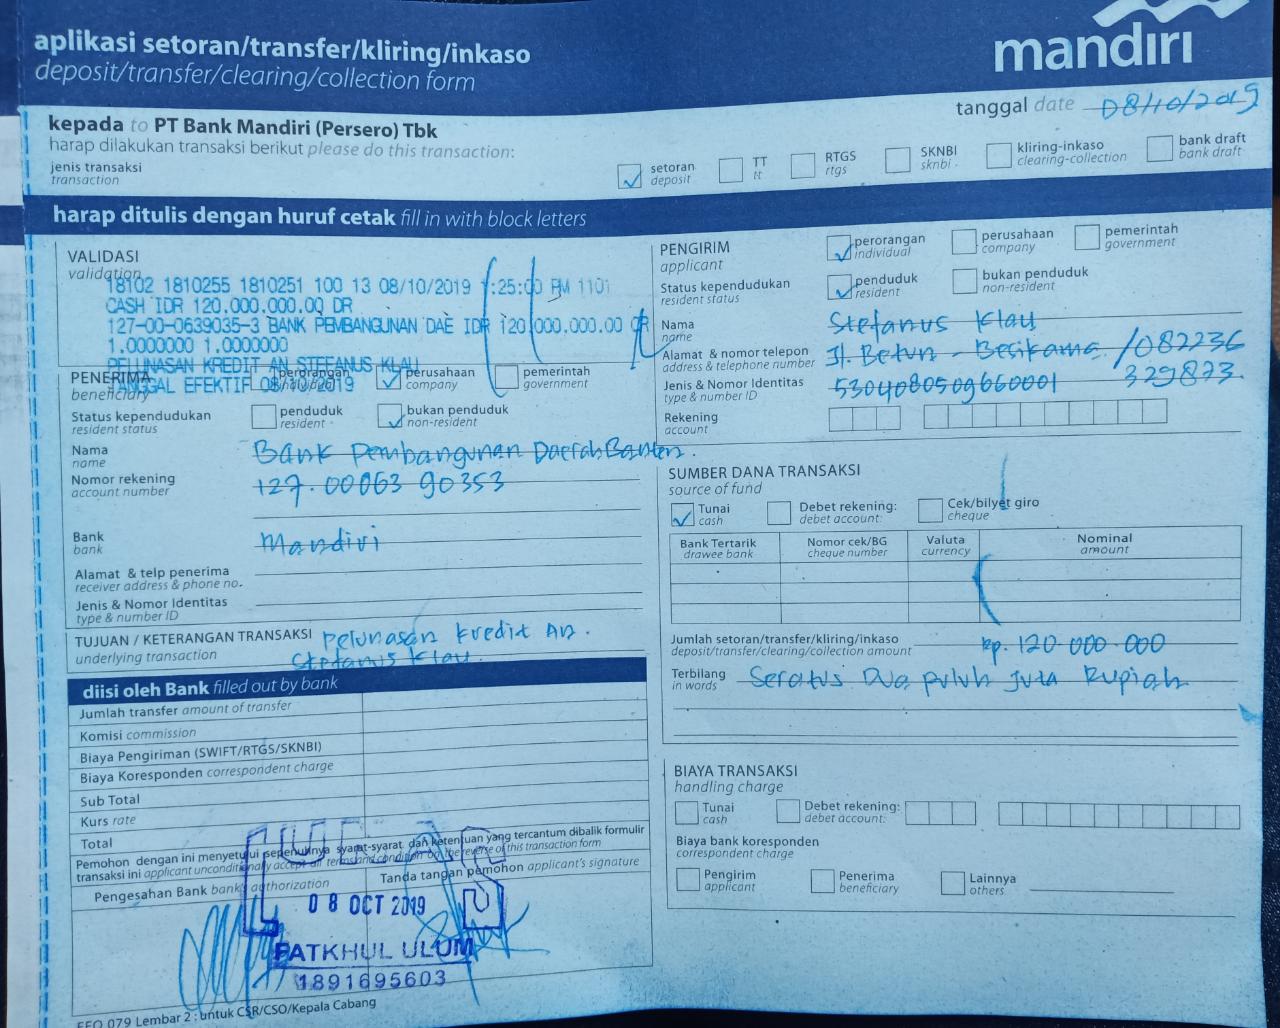 aplikasi setoran/transfer/kliring/inkaso
deposit/transfer/clearing/collection form
mandiri
tanggal date 08/10/2019
kepada to PT Bank Mandiri (Persero) Tbk
harap dilakukan transaksi berikut please do this transaction:
jenis transaksi
transaction
setoran
deposit
TT
tt
RTGS
rtgs
SKNBI
sknbi
kliring-inkaso
clearing-collection
bank draft
bank draft
harap ditulis dengan huruf cetak fill in with block letters
VALIDASI
validation
18102 1810255 1810251 100 13 08/10/2019 :25:00 PM 1101
CASH IDR 120.000.000.00 DR
127-00-0639035-3 BANK PEMBANGUNAN DAE IDR 120.000.000.00 CR
1.0000000 1.0000000
PELUNASAN KREDIT AN STEFANUS KLAU
TANGGAL EFEKTIF 08/10/2019
PENERIMA
beneficiary
perorangan
individual
perusahaan
company
pemerintah
government
Status kependudukan
resident status
penduduk
resident
bukan penduduk
non-resident
Nama
name
Bank Pembangunan Daerah Banten.
Nomor rekening
account number
127.00063 90353
Bank
bank
Mandiri
Alamat & telp penerima
receiver address & phone no.
Jenis & Nomor Identitas
type & number ID
TUJUAN / KETERANGAN TRANSAKSI
underlying transaction
Pelunasan kredit An.
Stefanus Klau.
diisi oleh Bank filled out by bank
Jumlah transfer amount of transfer
Komisi commission
Biaya Pengiriman (SWIFT/RTGS/SKNBI)
Biaya Koresponden correspondent charge
Sub Total
Kurs rate
Total
Pemohon dengan ini menyetujui sepenuhnya syarat-syarat dan ketentuan yang tercantum dibalik formulir
transaksi ini applicant unconditionally accept all terms and condition on the reverse of this transaction form
Pengesahan Bank bank's authorization
Tanda tangan pemohon applicant's signature
08 OCT 2019
FATKHUL ULUM
1891695603
Lembar 2 : untuk CSR/CSO/Kepala Cabang
PENGIRIM
applicant
perorangan
individual
perusahaan
company
pemerintah
government
Status kependudukan
resident status
penduduk
resident
bukan penduduk
non-resident
Nama
name
Stefanus Klau
Alamat & nomor telepon
address & telephone number
Jl. Betun - Besikama /082236
329873.
Jenis & Nomor Identitas
type & number ID
5304080509660001
Rekening
account
SUMBER DANA TRANSAKSI
source of fund
Tunai
cash
Debet rekening:
debet account:
Cek/bilyet giro
cheque
Bank Tertarik
drawee bank
Nomor cek/BG
cheque number
Valuta
currency
Nominal
amount
Jumlah setoran/transfer/kliring/inkaso
deposit/transfer/clearing/collection amount
Rp. 120.000.000
Terbilang
in words
Seratus Dua puluh Juta Rupiah
BIAYA TRANSAKSI
handling charge
Tunai
cash
Debet rekening:
debet account:
Biaya bank koresponden
correspondent charge
Pengirim
applicant
Penerima
beneficiary
Lainnya
others